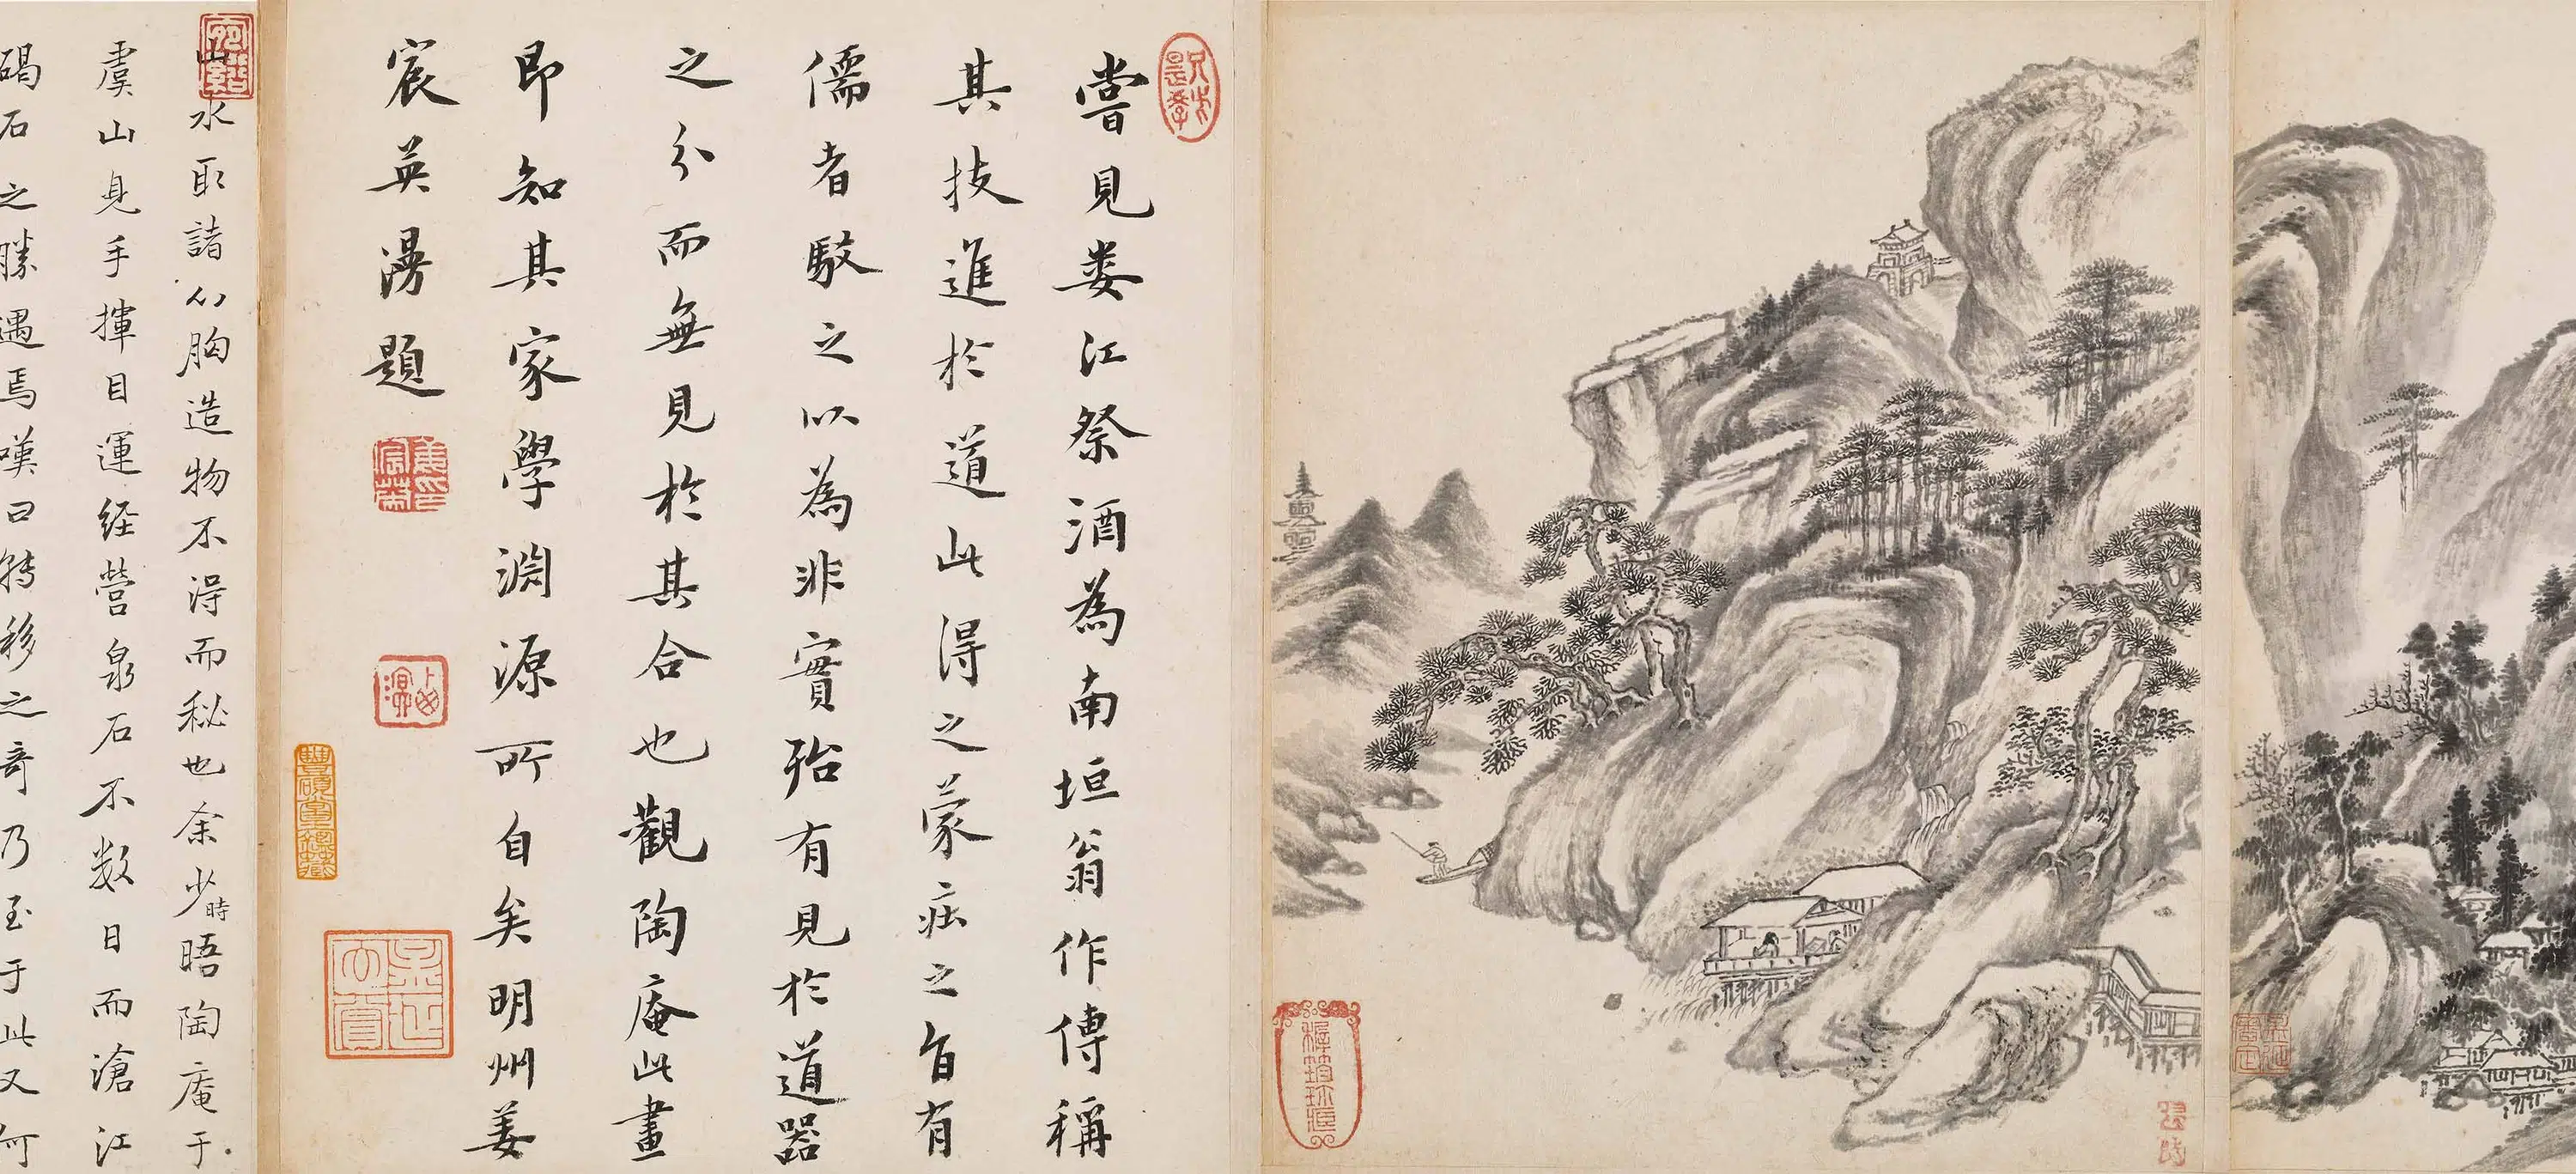 嘗見婁江祭酒為南垣翁作傳稱
其技進於道此得之蒙莊之旨有
儒者駁之以為非實殆有見於道器
之分而無見於其合也觀陶庵此畫
即知其家學淵源所自矣明州姜
宸英漫題
山水取諸心胸造物不得而秘也余少時晤陶庵于
虞山見手揮目運經營泉石不數日而滄江
碣石之勝遇焉嘆曰轉移之奇乃至于此又何